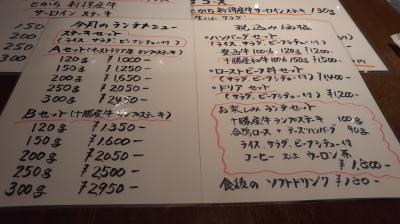 とかち新得産牛
サーロインステーキ
150
200
250
300
今月のランチメニュー
ステーキセット
(ライス、サラダ、ビーフシチュー付)
Aセット(オーストラリア産 ランプステーキ)
120g ¥1000-
150g ¥1250-
200g ¥1650-
250g ¥2050-
300g ¥2450-
Bセット(十勝産牛 ランプステーキ)
120g ¥1350-
150g ¥1600-
200g ¥2050-
250g ¥2500-
300g ¥2950-
とかち新得産牛サーロインステーキ 130g
サラダ
税込み価格
・ハンバーグセット
(ライス、サラダ、ビーフシチュー付)
100% 120g ¥1200-
100% 150g ¥1500-
・ローストビーフ丼セット
(サラダ、ビーフシチュー付) ¥1,400-
・ドリアセット
(サラダ、ビーフシチュー付) ¥1,200-
お楽しみランチセット
十勝産牛ランプステーキ 100g
ロース + チーズハンバーグ 90g
ライス、サラダ、ビーフシチュー
コーヒー 又は ウーロン茶
¥1,800-
食後の ソフトドリンク ¥180-